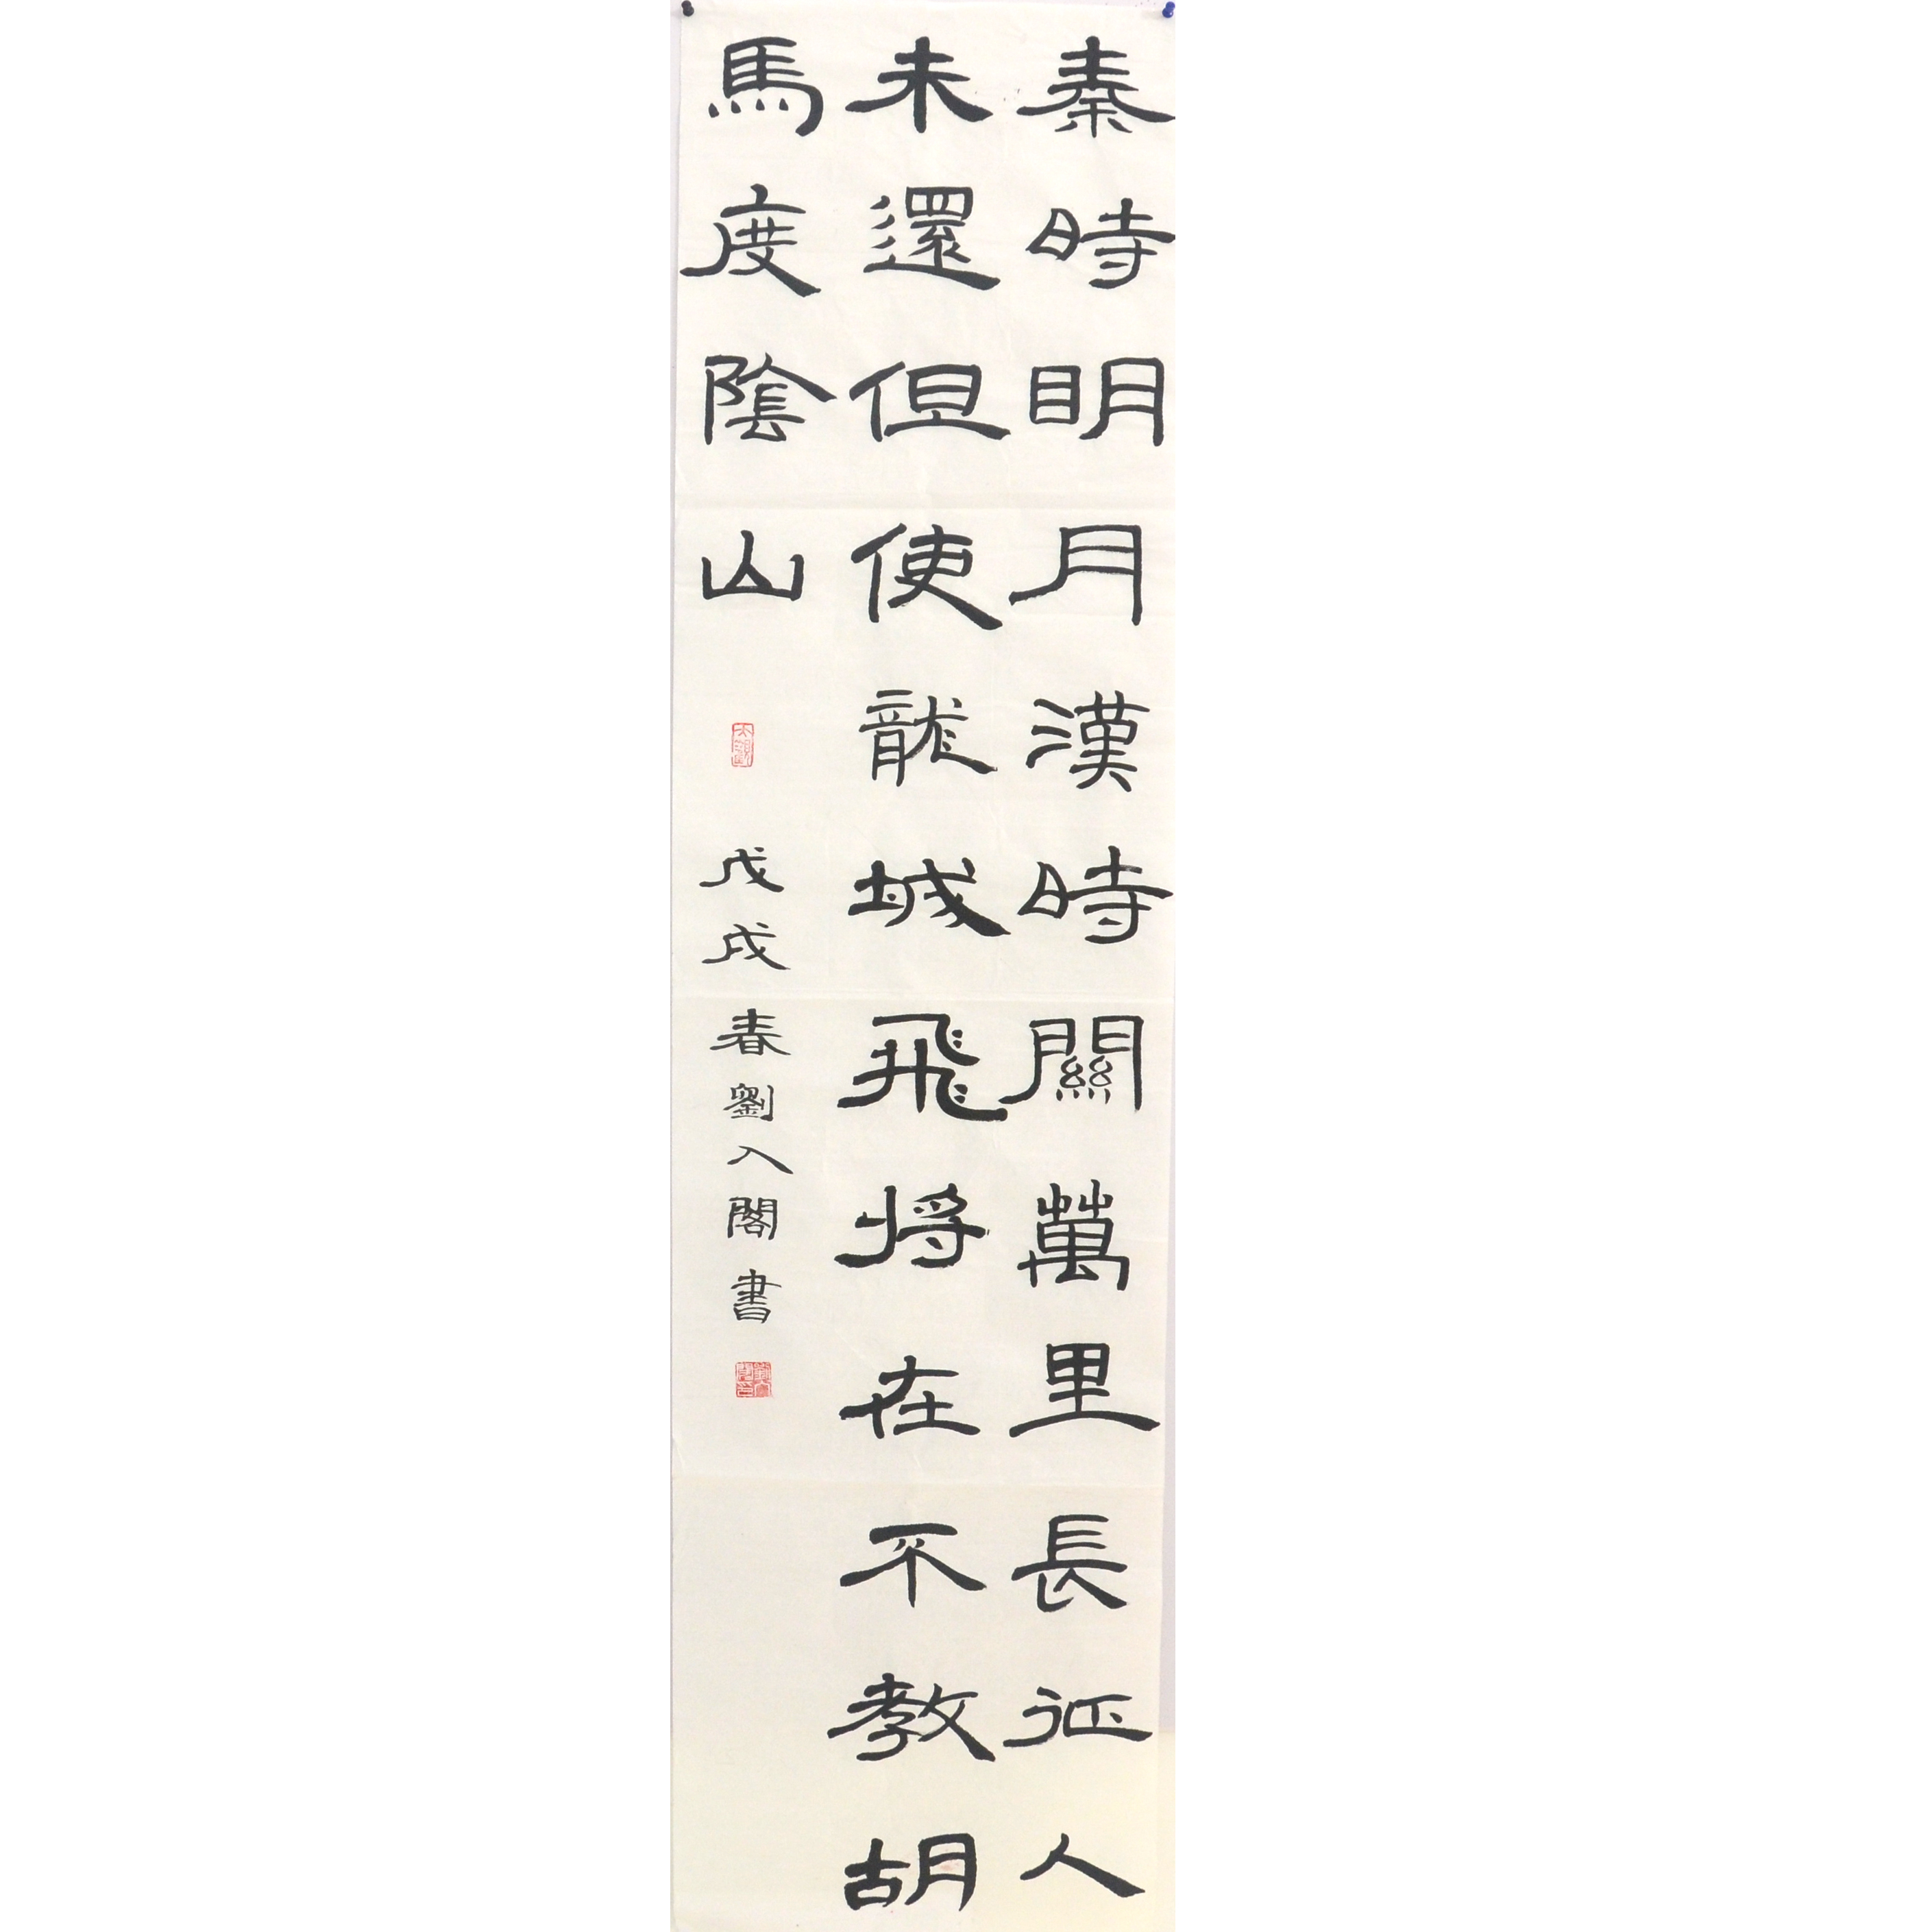 秦時明月漢時關萬里長征人
未還但使龍城飛將在不教胡
馬度陰山
戊戌春劉入閣書